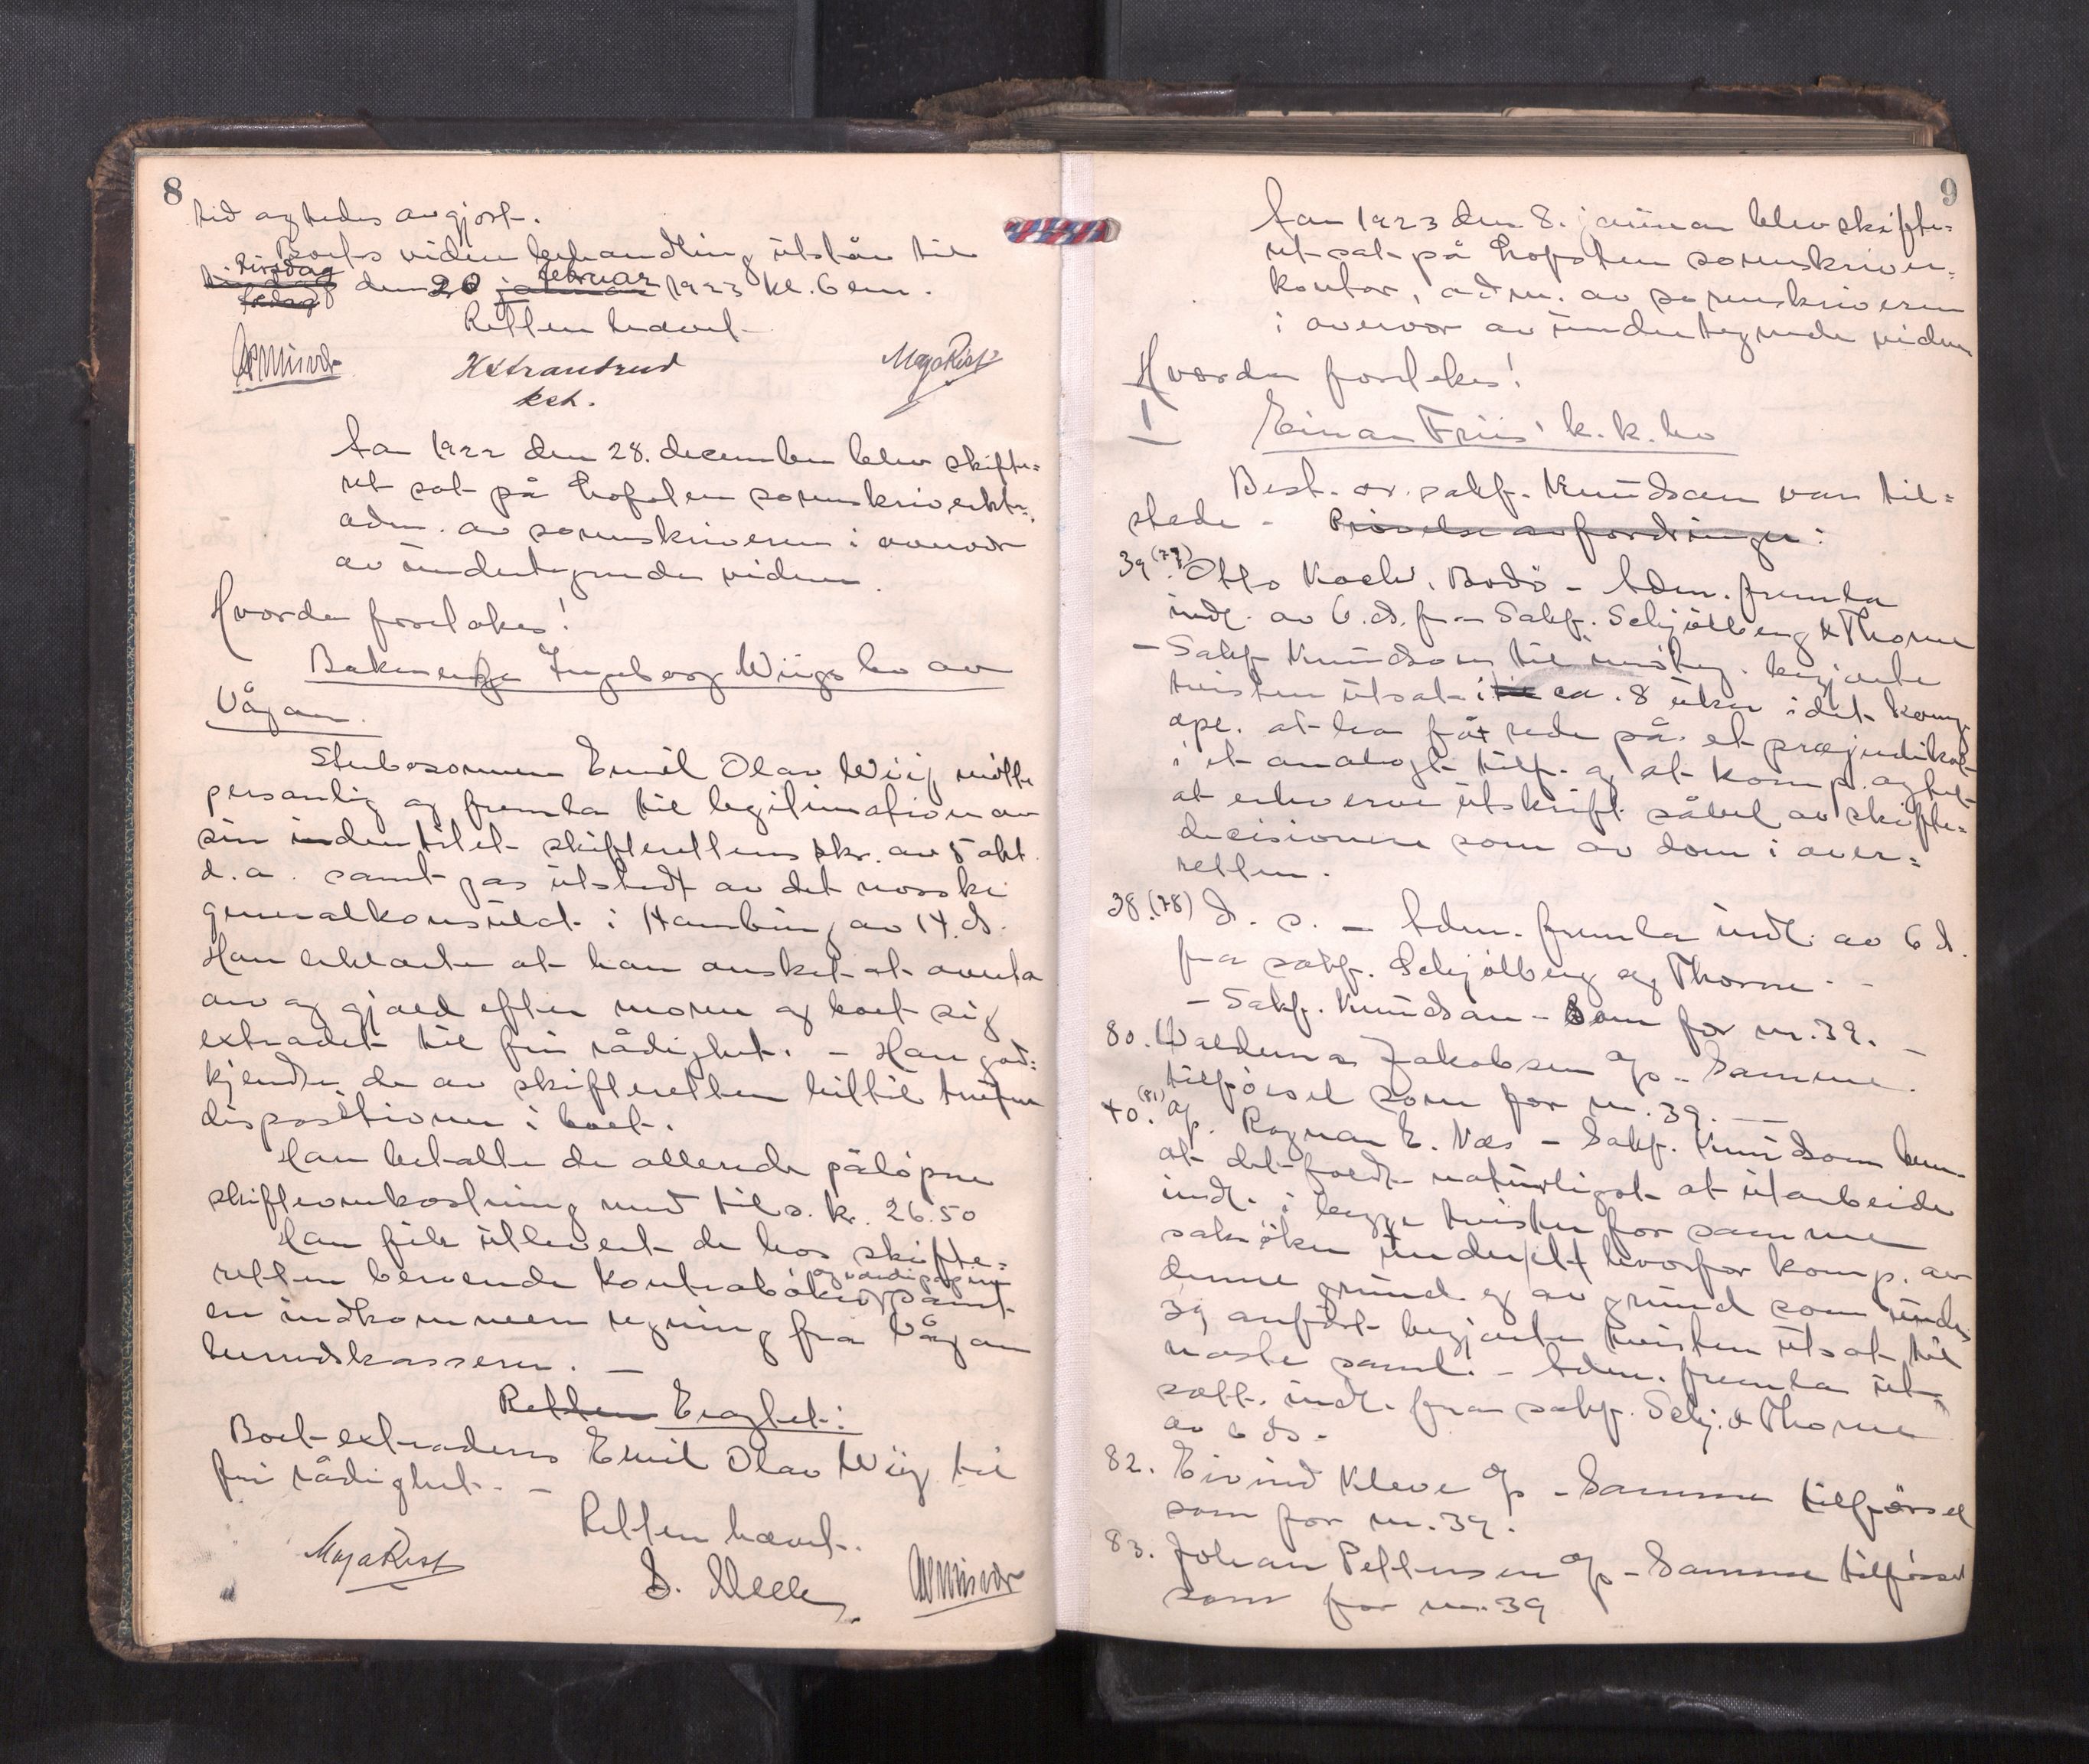 8
tid agtedes avgjort.
Boets videre behandling utstår til
tirsdag
den 20 februar 1923 kl. 6 em.
Retten hævet
HStrandrud
ksh.
Maja Rist
Aar 1922 den 28. december blev skifte=
ret sat på Lofoten sorenskriverktr.
adm. av sorenskriveren i overvær
av undertegnede vidner.
Hvorda foretokes!
Ingeborg Wiigs bo av
Vågan.
Stervbosønnen Emil Olav Wiig møtte
personlig og fremla til legitimation av
sin indentitet skifterettens skr. av 5 okt.
d.a. samt pas utstedt av det norske
generalkonsulat i Hamburg av 14. ds.
Han erklærte at han ønsket at overta
arv og gjæld efter moren og boet sig
extradert til fri rådighet. - Han god=
kjendte de av skifteretten hittil trufne
dispositioner i boet.
Han betalte de allerede påløpne
skifteomkostninger med tils. kr. 26.50
Han fik utlevert de hos skifte=
og værdipapirer
retten beroende kontrabøker samt
en indkommen regning fra Vågan
herredskasserer. -
Retten Eragtet:
Boet extraderes Emil Olav Wiig til
fri rådighet. -
Retten hævet.
Maja Rist
9
Aar 1923 den 8. januar blev skifte=
ret sat på Lofoten sorenskriver=
kontor, adm. av sorenskriveren
i overvær av undertegnede vidner
Hvorda foretokes!
I
Einar Friis' k.k.bo
Best. or. sakf. Knudsen var til=
stede - Prøvelse av fordringer:
39 (79) Otto Koch, Bodø - Adm. fremla
indl. av 6. ds. fra Sakf. Schjølberg & Thorne
- Sakf Knudsen til begjærte
tvisten utsat i ca. 8 uker idet komp.
opl. at ha fåt rede på et præjudikat
i et analogt tilf. og at komp. agtet
at erhverve utskrift såvel av skifte=
decisionen som av dom i over=
retten.
38. (78) D. s. - Adm. fremla indl. av 6 ds.
fra sakf. Schjølberg og Thorne. -
- Sakf. Knudsen - Som for nr. 39. -
80. Valdemar Jakobsen - Samme
tilførsel som for nr. 39. -
40. (81) Ragnar E. Næs - Sakf. Knudsen bem.
at det faldt naturligst at utarbeide
indl. i begge tvister for samme
saksøker under 1 hvorfor komp. av
denne grund og av grund som under
39 anført begjærte tvisten utsat til
næste saml. - Adm. fremla ut-
sætt. indl. fra sakf. Schj. & Thorne
av 6 ds. -
82. Eivind Kleve - Samme tilførsel
som for nr. 39.
83. Johan Pettersen - Samme tilførsel
som for nr. 39